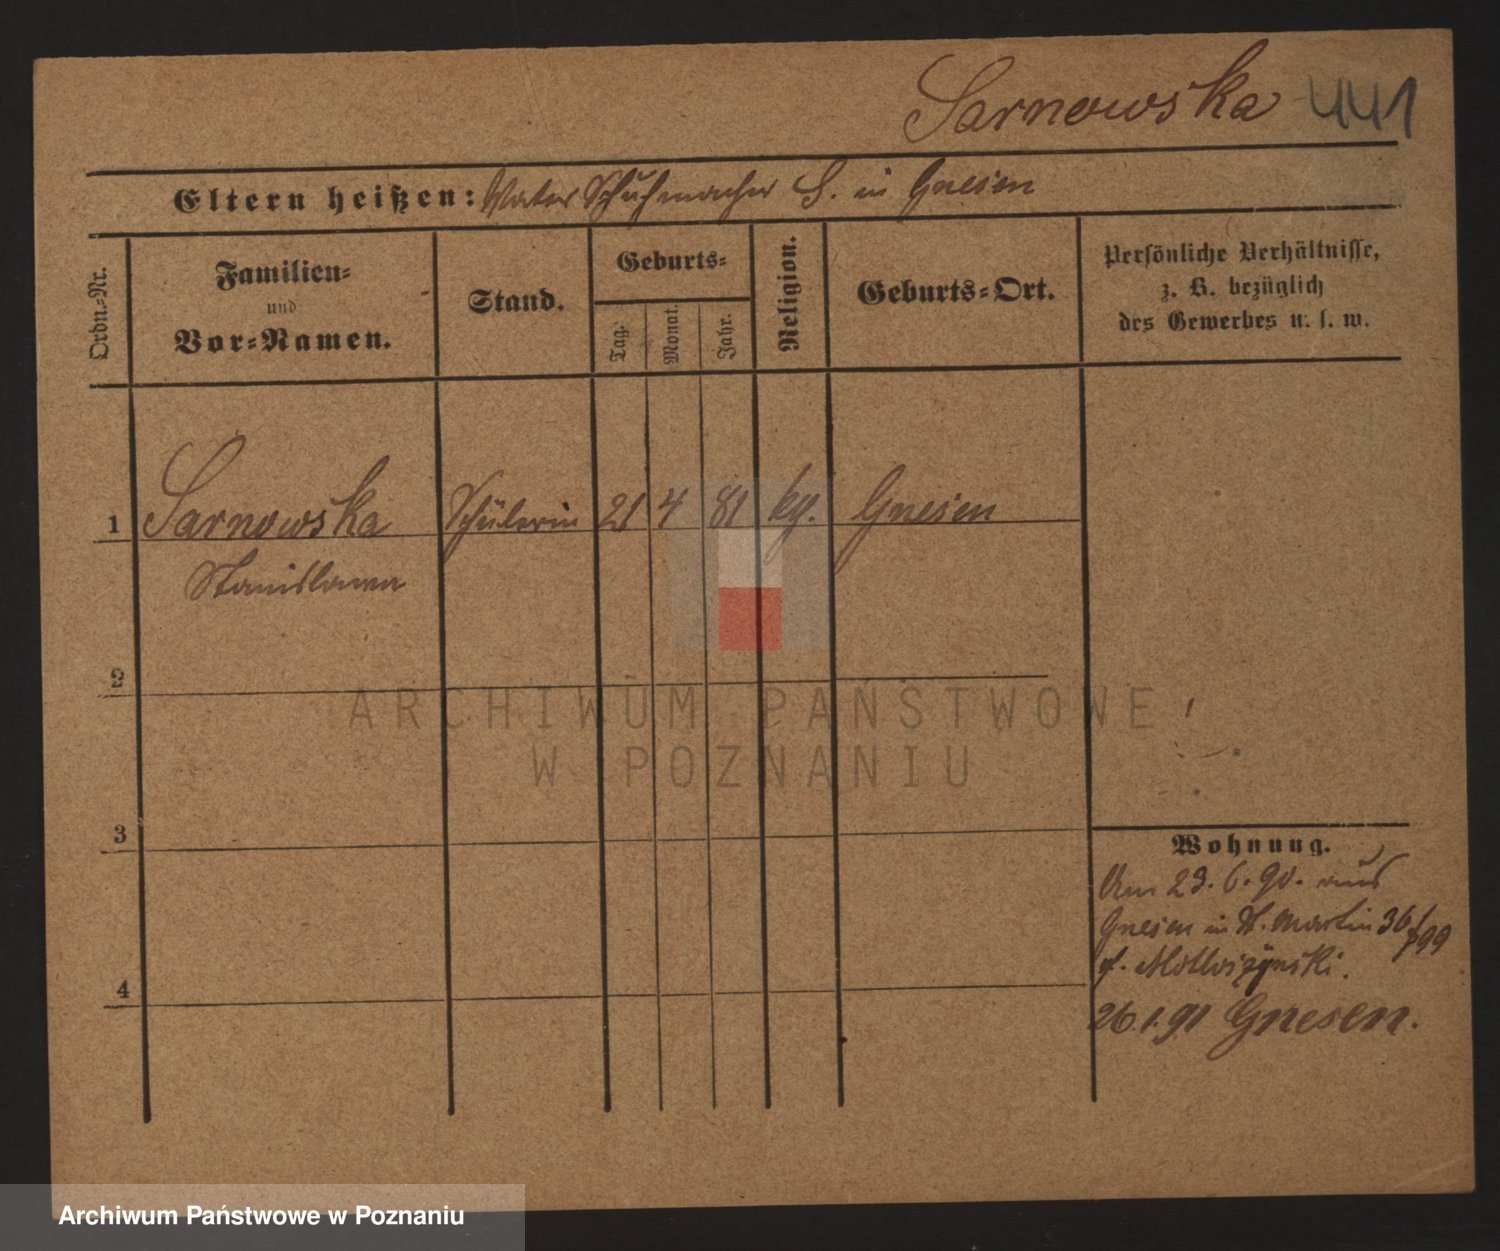 Sarnowska 441
Eltern heißen: Vater Schuhmacher S. in Gnesen
Ordn.-Nr.
Familien-
und
Vor-Namen.
Stand.
Geburts-
Tag.
Monat.
Jahr.
Religion.
Geburts-Ort.
Persönliche Verhältnisse,
z. B. bezüglich
des Gewerbes u. s. w.
1 Sarnowska Schülerin 21 4 81 kg. Gnesen
Stanislawa
2
3
4
Wohnung.
Am 23. 6. 90. aus
Gnesen in St. Martin 36/
26.1.91 Gnesen.
ARCHIWUM PAŃSTWOWE
W POZNANIU
Archiwum Państwowe w Poznaniu